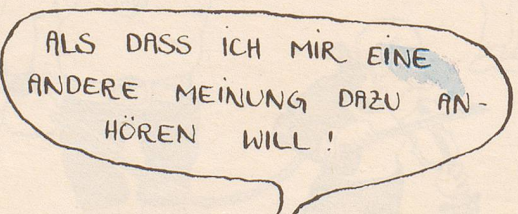 ALS DASS ICH MIR EINE
ANDERE MEINUNG DAZU AN-
HÖREN WILL!